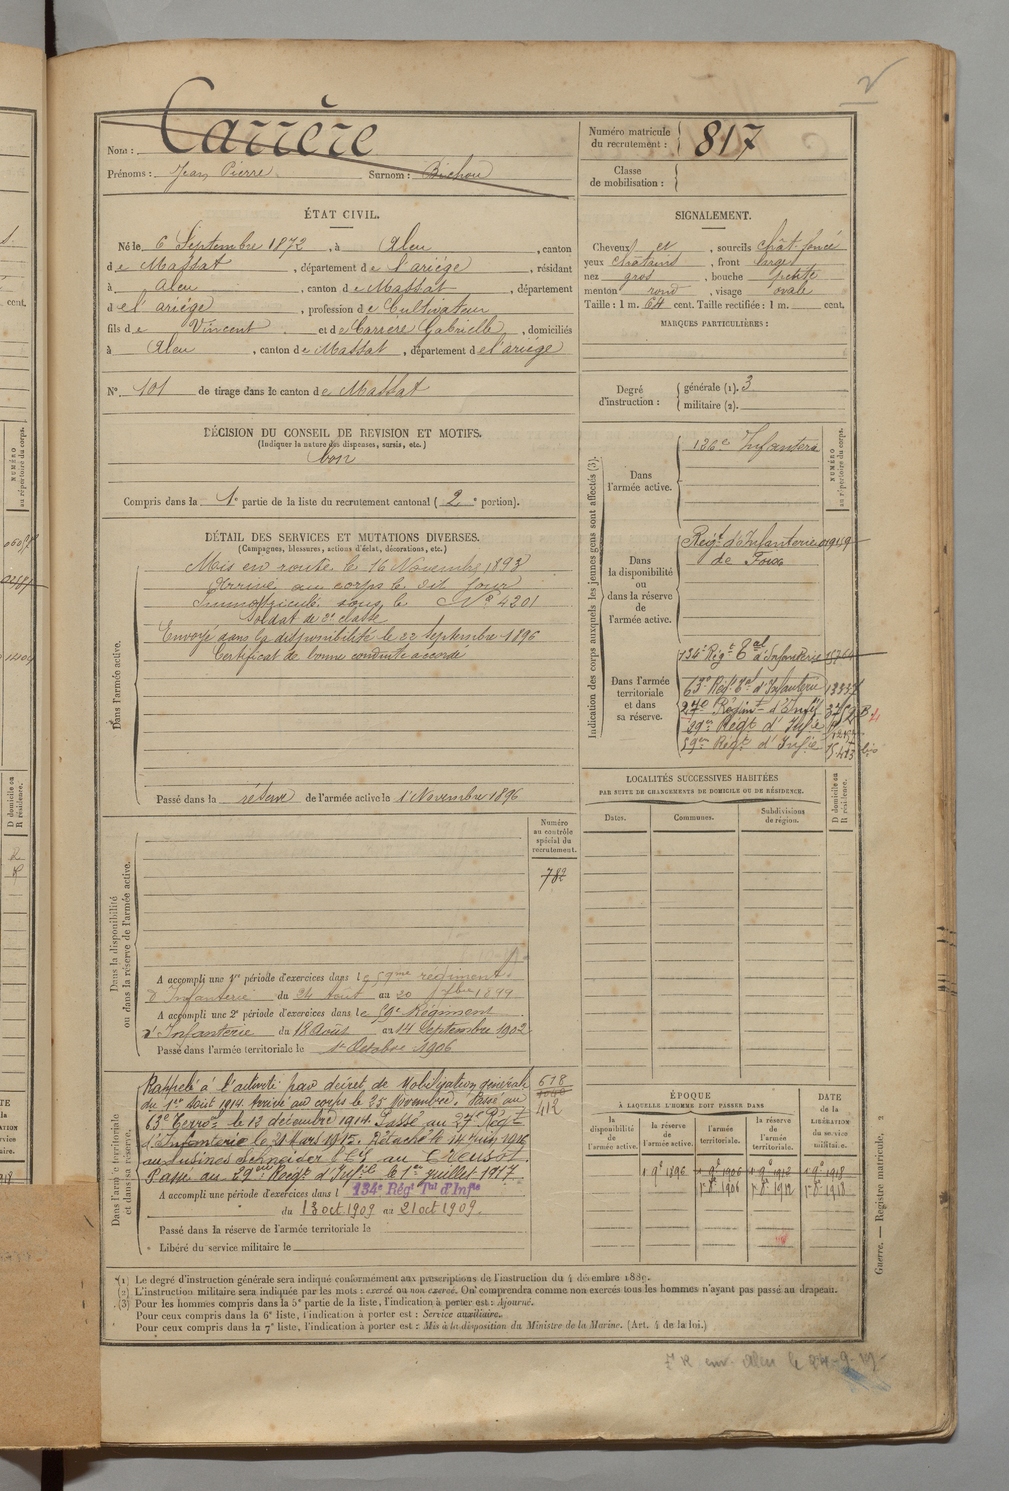 Nom : Carrère
Prénoms : Jean Pierre Surnom : Bichou
Numéro matricule du recrutement : 817
Classe de mobilisation :
ÉTAT CIVIL.
Né le 6 Septembre 1872, à Aleu, canton
de Massat, département de l'ariége, résidant
à Aleu, canton de Massat, département
de l'ariége, profession de Cultivateur
fils de Vincent et de Carrere Gabrielle, domiciliés
à Aleu, canton de Massat, département de l'ariége
N° 101 de tirage dans le canton de Massat
SIGNALEMENT.
Cheveux et, sourcils chât-foncé
yeux châtains, front large
nez gros, bouche petite
menton rond, visage ovale
Taille : 1 m. 64 cent. Taille rectifiée : 1 m. cent.
MARQUES PARTICULIÈRES :
Degré d'instruction : générale (1). 3
militaire (2).
DÉCISION DU CONSEIL DE REVISION ET MOTIFS.
(Indiquer la nature des dispenses, sursis, etc.)
bon
Compris dans la 1e partie de la liste du recrutement cantonal (2e portion).
DÉTAIL DES SERVICES ET MUTATIONS DIVERSES.
(Campagnes, blessures, actions d'éclat, décorations, etc.)
Dans l'armée active.
Mis en route le 16 Novembre 1893
Arrivé au corps le dit jour
Immatriculé sous le N° 4201
Soldat de 2e classe
Envoyé dans la disponibilité le 22 Septembre 1896
Certificat de bonne conduite accordé
Passé dans la réserve de l'armée active le 1 Novembre 1896
Indication des corps auxquels les jeunes gens sont affectés (3).
NUMÉRO au répertoire du corps.
Dans l'armée active.
126e Infanterie
Dans la disponibilité ou dans la réserve de l'armée active.
Régt d'Infanterie
de Foix
Dans l'armée territoriale et dans sa réserve.
134e Régt Tal d'Infanterie
63e Régt Tal d'Infanterie
27e Régimt d'Infie
29me Régt d'Infie
59me Régt d'Infie
LOCALITÉS SUCCESSIVES HABITÉES
PAR SUITE DE CHANGEMENTS DE DOMICILE OU DE RÉSIDENCE.
D domicile ou R résidence.
Dates. Communes. Subdivisions de région.
Numéro au contrôle spécial du recrutement.
782
Dans la disponibilité ou dans la réserve de l'armée active.
A accompli une 1re période d'exercices dans le 59me régiment
d'Infanterie du 24 Août au 20 7bre 1899
A accompli une 2e période d'exercices dans le 59e Régiment
d'Infanterie du 18 Août au 14 Septembre 1902
Passé dans l'armée territoriale le 1er Octobre 1906
Dans l'armée territoriale et dans sa réserve.
Rappelé à l'activité par décret de Mobilisation générale
du 1er Août 1914. Arrivé au corps le 25 Novembre. Passé au
63e Terral le 13 décembre 1914. Passé au 27e Régt
d'Infanterie le 21 Mars 1915. Détaché le 14 Juin 1916
aux usines Schneider & Cie au Creusot.
Passé au 29me Régt d'Infie le 1er Juillet 1917.
618
412
A accompli une période d'exercices dans l 134e Régt Tal d'Infie
du 13 oct. 1909 au 21 oct 1909.
Passé dans la réserve de l'armée territoriale le
Libéré du service militaire le
ÉPOQUE
À LAQUELLE L'HOMME DOIT PASSER DANS
DATE de la LIBÉRATION du service militaire.
la disponibilité de l'armée active. la réserve de l'armée active. l'armée territoriale. la réserve de l'armée territoriale.
1 9e 1896 1 9e 1906 1 9e 1912 1 9e 1918
1er 8e 1906 1er 8e 1912 1er 8e 1918
Guerre. — Registre matricule. 2
(1) Le degré d'instruction générale sera indiqué conformément aux prescriptions de l'instruction du 4 décembre 1889.
(2) L'instruction militaire sera indiquée par les mots : exercé ou non exercé. On comprendra comme non exercés tous les hommes n'ayant pas passé au drapeau.
(3) Pour les hommes compris dans la 5e partie de la liste, l'indication à porter est : Ajourné.
Pour ceux compris dans la 6e liste, l'indication à porter est : Service auxiliaire.
Pour ceux compris dans la 7e liste, l'indication à porter est : Mis à la disposition du Ministre de la Marine. (Art. 4 de la loi.)